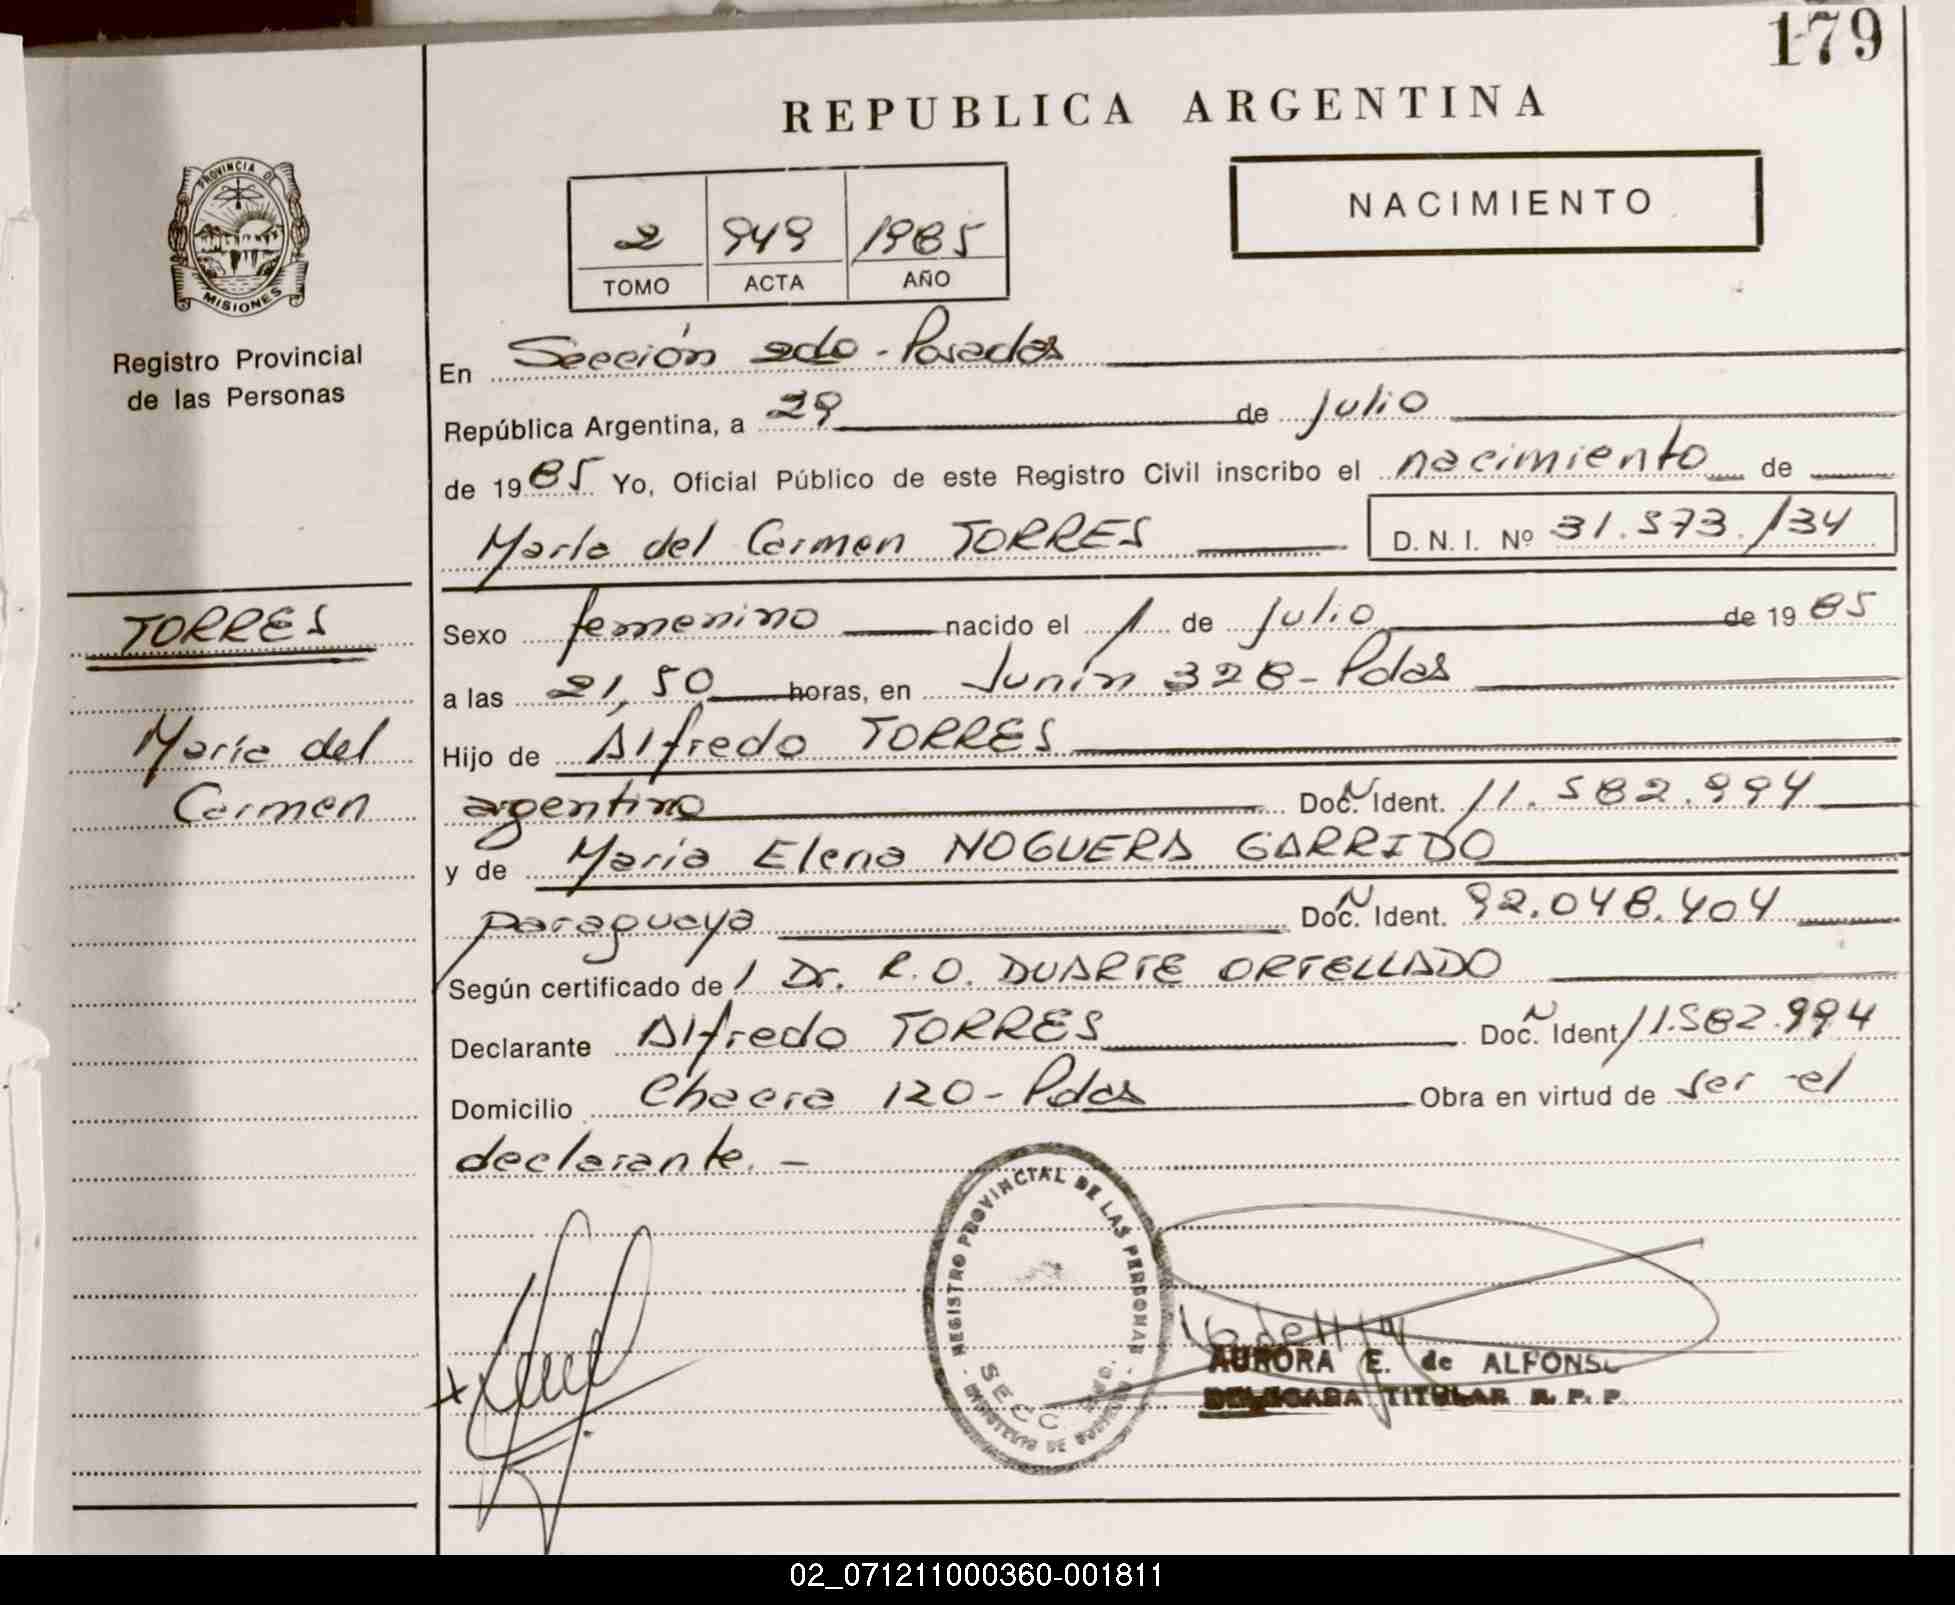 179
REPUBLICA ARGENTINA
PROVINCIA DE
MISIONES
Registro Provincial
de las Personas
NACIMIENTO
2 949 1985
TOMO ACTA AÑO
En Sección 2do - Posadas
República Argentina, a 29 de julio
de 1985 Yo, Oficial Público de este Registro Civil inscribo el nacimiento de
María del Carmen TORRES D. N. I. Nº 31.573.134
TORRES
María del
Carmen
Sexo femenino nacido el 1 de julio de 1985
a las 21,50 horas, en Junín 328 - Pdas
Hijo de Alfredo TORRES
argentino Doc. Ident. 11.582.994
y de María Elena NOGUERA GARRIDO
paraguaya Doc. Ident. 92.048.404
Según certificado de Dr. R. O. DUARTE ORTELLADO
Declarante Alfredo TORRES Doc. Ident. 11.582.994
Domicilio Chacra 120 - Pdas Obra en virtud de ser el
declarante. -
REGISTRO PROVINCIAL DE LAS PERSONAS
SECC.
MINISTERIO DE GOBIERNO
AURORA E. de ALFONSO
DELEGADA TITULAR R. P. P.
02_071211000360-001811